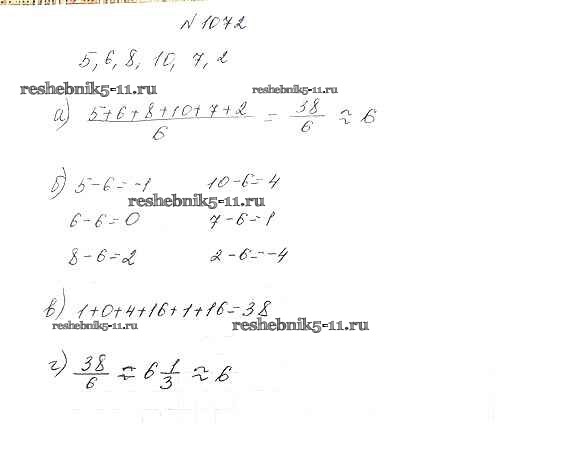 N 1072
5, 6, 8, 10, 7, 2
reshebnik5-11.ru reshebnik5-11.ru
а) 5+6+8+10+7+2 / 6 = 38/6 ≈ 6
б) 5-6=-1 10-6=4
reshebnik5-11.ru
6-6=0 7-6=1
8-6=2 2-6=-4
в) 1+0+4+16+1+16=38
reshebnik5-11.ru reshebnik5-11.ru
г) 38/6 ≈ 6 1/3 ≈ 6